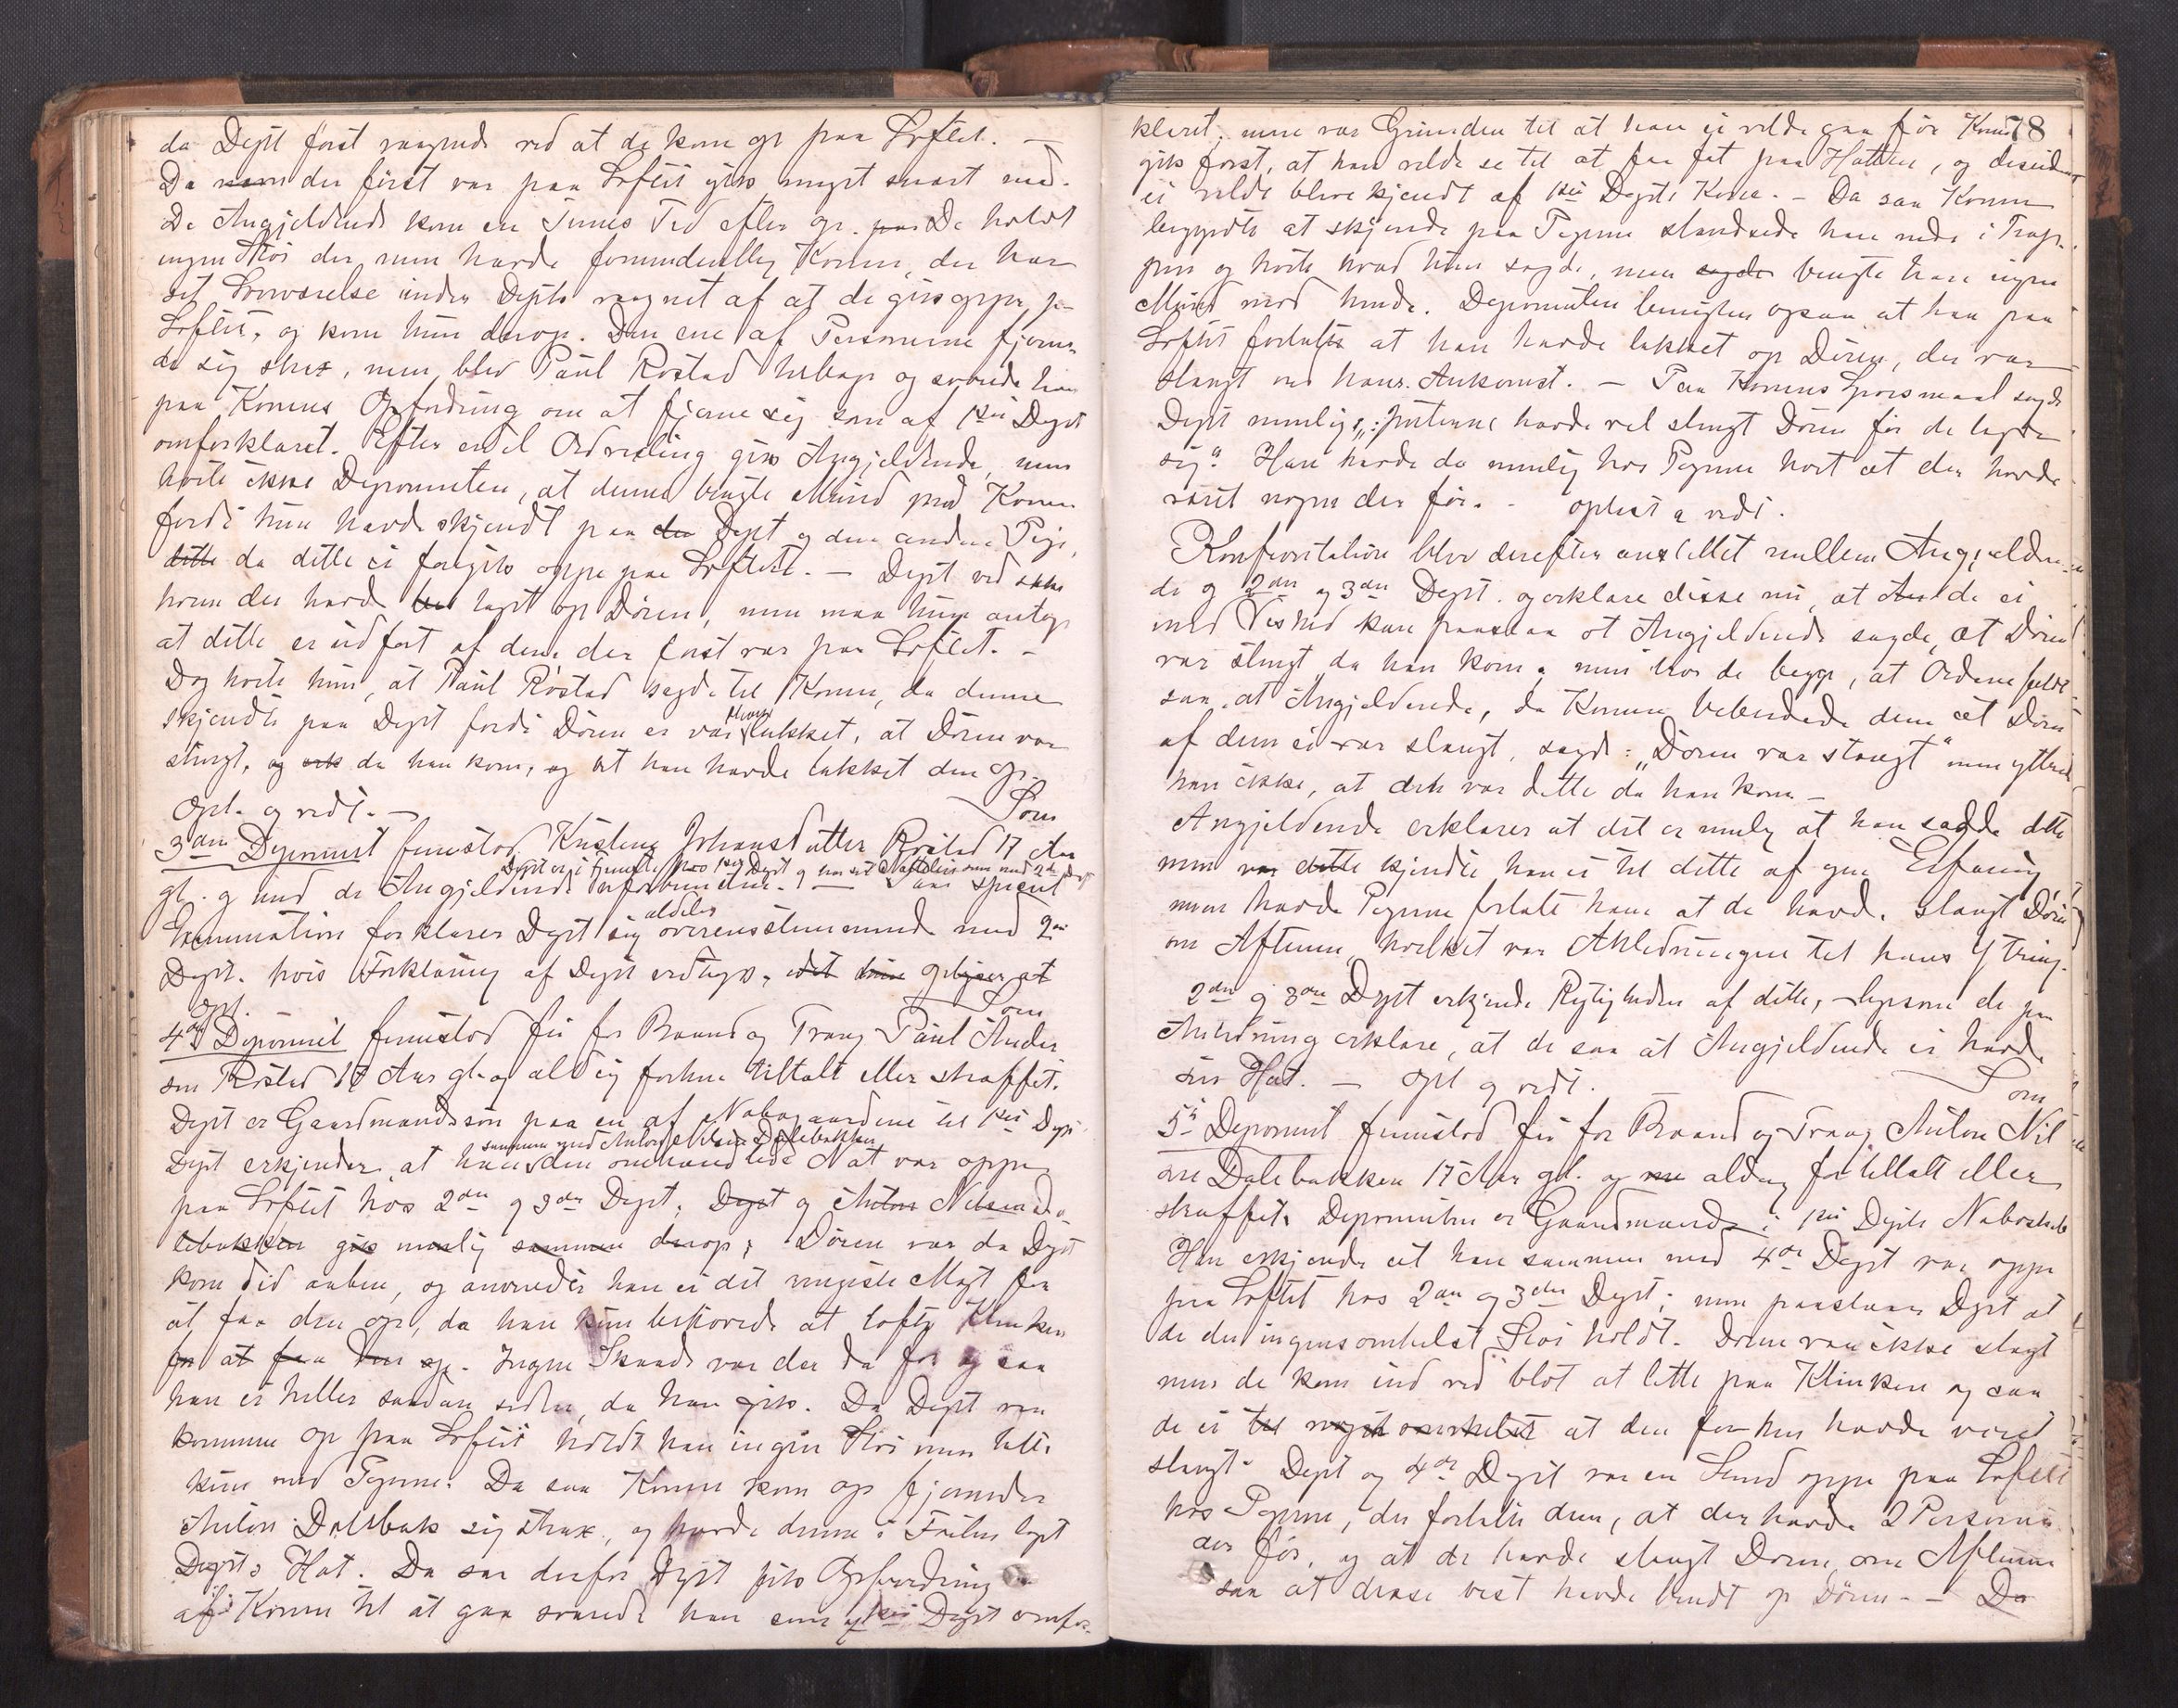 da Dept först vaagnede ved at de kom op paa Loftet. —
Da der först var paa Loftet gik meget snart ned.
De Angjeldende kom en Times Tid efter op. De holdt
ingen Stöi der, men havde formodentlig Konen, der har
sit Soveværelse under Depts vaagnet af at de gik oppe p.
Loftet, og kom hun derop. Den ene af Personerne fjerne-
de sig strax, men blev Paul Röstad tilbage og svarede han
paa Konens Opfordring om at fjerne sig som af 1ste Dept
omforklaret. Efter endel Ordvexling gik Angjeldende, men
hörte ikke Deponenten, at denne brugte Mund mod Konen
fordi hun havde skjendt paa Dept og den anden Pige,
da dette ei foregik oppe paa Loftet. — Dept ved ikke
hvem der havde lagt op Dören, men maa hun antage
at dette er udfört af dem der först var paa Loftet. –
Dog hörte hun, at Paul Röstad sagde til Konen, da denne
skjendte paa Dept fordi Dören ei var lukket, at Dören var
stængt, og da han kom, og at han havde lukket den op.
Opl. og vedt. — Som
3die Deponent fremstod Kristine Johansdatter Röstad 17 Aar
Dept er i Tjeneste hos 1ste Dept og har sit Natteleie sam med 2den Dept
gl. og med de Angjeldende uforbunden. — Paa speciel
Examination forklarer Dept sig aldeles overensstemmende med 2den
Dept. hvis Forklaring af Dept vedtages.
opl. Som
4de Deponent fremstod fri for Baand og Tvang Paul Ander-
sen Röstad 17 Aar gl. og aldrig forhen tiltalt eller straffet.
Dept er Gaardmandssön paa en af Nabogaardene til 1ste Dept.
sammen med Anton Nilsen Dalebakken
Dept erkjender at han den omhandlede Nat var oppe
paa Loftet hos 2den og 3die Dept; Dept og Anton Nilsen Da-
lebakken gik nemlig sammen derop; Dören var da Dept
kom did aaben, og anvendte han ei det ringeste Magt for
at faa den op, da han kun behövede at löfte Klinken
for at faa den op. Ingen Skade var der da for og saa
han ei heller saadan siden, da han gik. Da Dept var
kommen op paa Loftet holdt han ingen Stöi men talte
kun med Pigerne. Da saa Konen kom op fjernede
Anton Dalebak sig strax, og havde denne i Feilen taget
Depts Hat. Da saa derfor Dept fik Opfordring
af Konen til at gaa svarede han som af 1ste Dept omfor-
78
klaret; men var Grunden til at han ei vilde gaa för Konen
gik först, at han vilde se til at faa fat paa Hatten, og desuden
ei vilde blive kjendt af 1ste Depts Kone. – Da saa Konen
begyndte at skjende paa Pigerne standsede han nede i Trap-
pen og hörte hvad hun sagde, men brugte han ingen
Mund mod hende. Deponenten benegter ogsaa at han paa
Loftet fortalte at han havde lukket op Dören, der var
stængt ved hans Ankomst. — Paa Konens Spörsmaal sagde
Dept nemlig: „Jenterne havde vel stængt Dören för de lagde
sig". Han havde da nemlig hos Pigerne hört at der havde
været nogen der för. – oplæst og vedt.
Konfrontation blev derefter anstillet mellem Angjelden-
de og 2den og 3die Dept. og erklare disse nu, at de ei
med Vished kan paastaa at Angjeldende sagde, at Dören
var stængt da han kom, men tror de begge, at Ordene faldt
saa, at Angjeldende, da Konen bebreidede dem at Dören
af dem ei var stængt, sagde: „Dören var stængt" men yttrede
han ikke, at den var dette da han kom —
Angjeldende erklarer at det er mulig at han sagde dette
men kjendte han ei til dette af egen Erfaring
men havde Pigerne fortalt ham at de havde stængt Dören
om Aftenen, hvilket var Anledningen til hans Ytring.
2den og 3die Dept erkjende Rigtigheden af dette, ligesom de paa
Anledning erklare, at de saa at Angjeldende ei havde
sin Hat. — opl og vedt. Som
5te Deponent fremstod fri for Baand og Tvang Anton Nil-
sen Dalebakken 17 Aar gl. og aldrig för tiltalt eller
straffet. Deponenten er Gaardmands i 1ste Depts Naboskab
Han erkjender at han sammen med 4de Dept var oppe
paa Loftet hos 2den og 3die Dept; men paastaar Dept at
de der ingensomhelst Stöi holdt. Dören var ikke stengt
men de kom ind ved blot at lette paa Klinken og saa
de ei at den forhen havde været
stængt. Dept og 4de Dept var en Stund oppe paa Loftet
hos Pigerne, der fortalte dem, at der havde 2 Personer
der för, og at de havde stængt Dören om Aftenen
saa at disse vist havde brudt op Dören. – Da